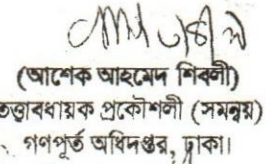 (আশেক আহমেদ শিবলী)
তত্ত্বাবধায়ক প্রকৌশলী (সমন্বয়)
গণপূর্ত অধিদপ্তর, ঢাকা।